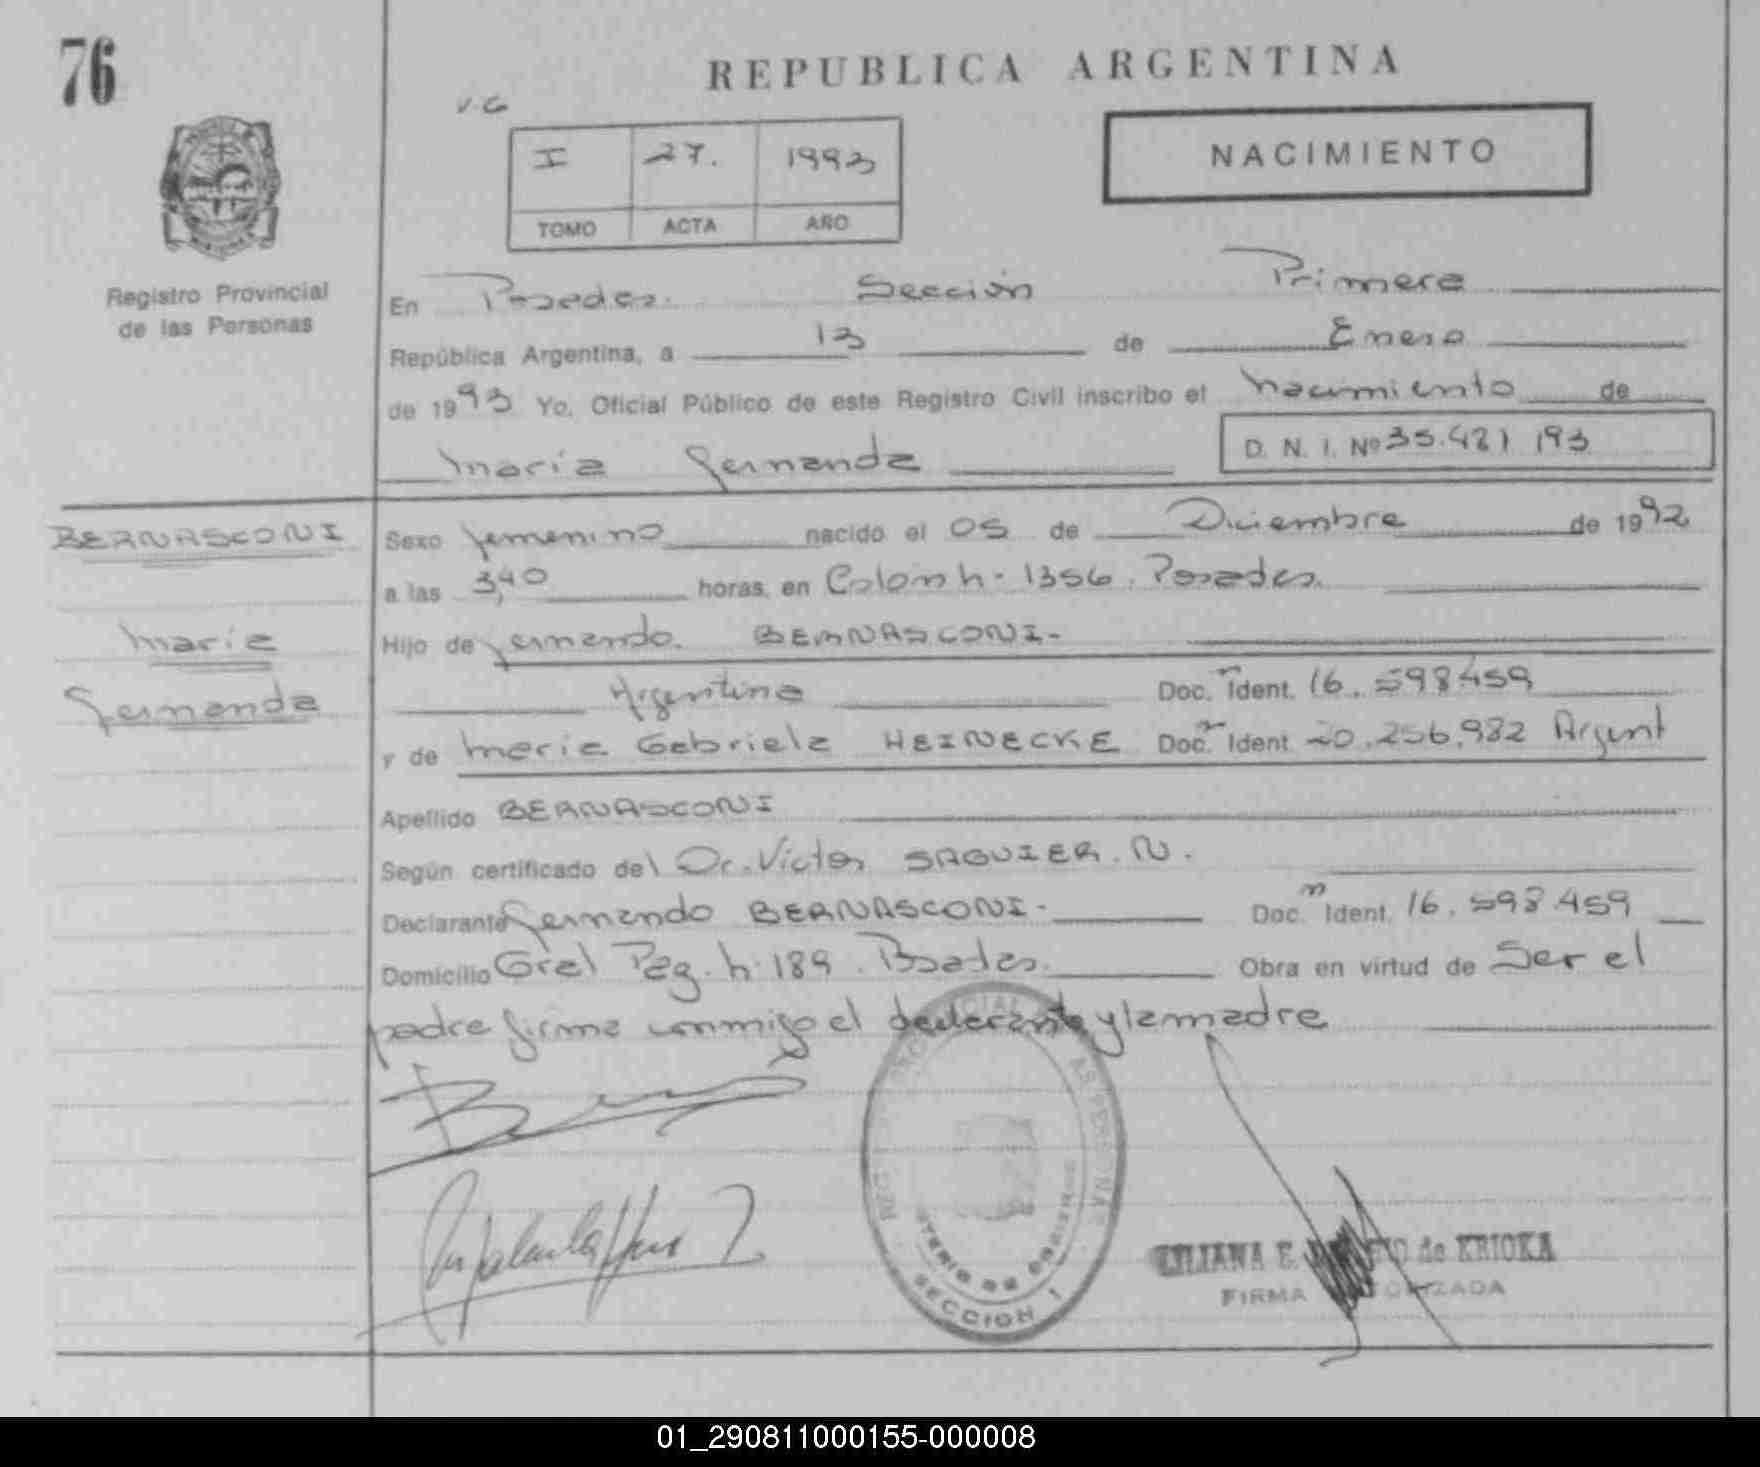 76
REPUBLICA ARGENTINA
V.G
I 27. 1993
TOMO ACTA AÑO
NACIMIENTO
Registro Provincial
de las Personas
En Posadas. Sección Primera
República Argentina, a 13 de Enero
de 1993 Yo, Oficial Público de este Registro Civil inscribo el Nacimiento de
María Fernanda D. N. I. Nº 35.421 193
BERNASCONI
María
Fernanda
Sexo femenino nacido el 05 de Diciembre de 1992
a las 3,40 horas, en Colón n- 1356. Posadas.
Hijo de Fernando. BERNASCONI-
Argentina Doc. n Ident. 16.598.459
y de María Gabriela HEINECKE Doc. n Ident. 20.256.982 Argent
Apellido BERNASCONI
Según certificado del Dr. Victor SAGUIER. N.
Declarante Fernando BERNASCONI- Doc. n Ident. 16.598.459
Domicilio Gral Paz. n- 189. Posadas. Obra en virtud de Ser el
padre firma conmigo el declarante y la madre
SECCION 1
LILIANA E. de KRIOKA
FIRMA
01_290811000155-000008